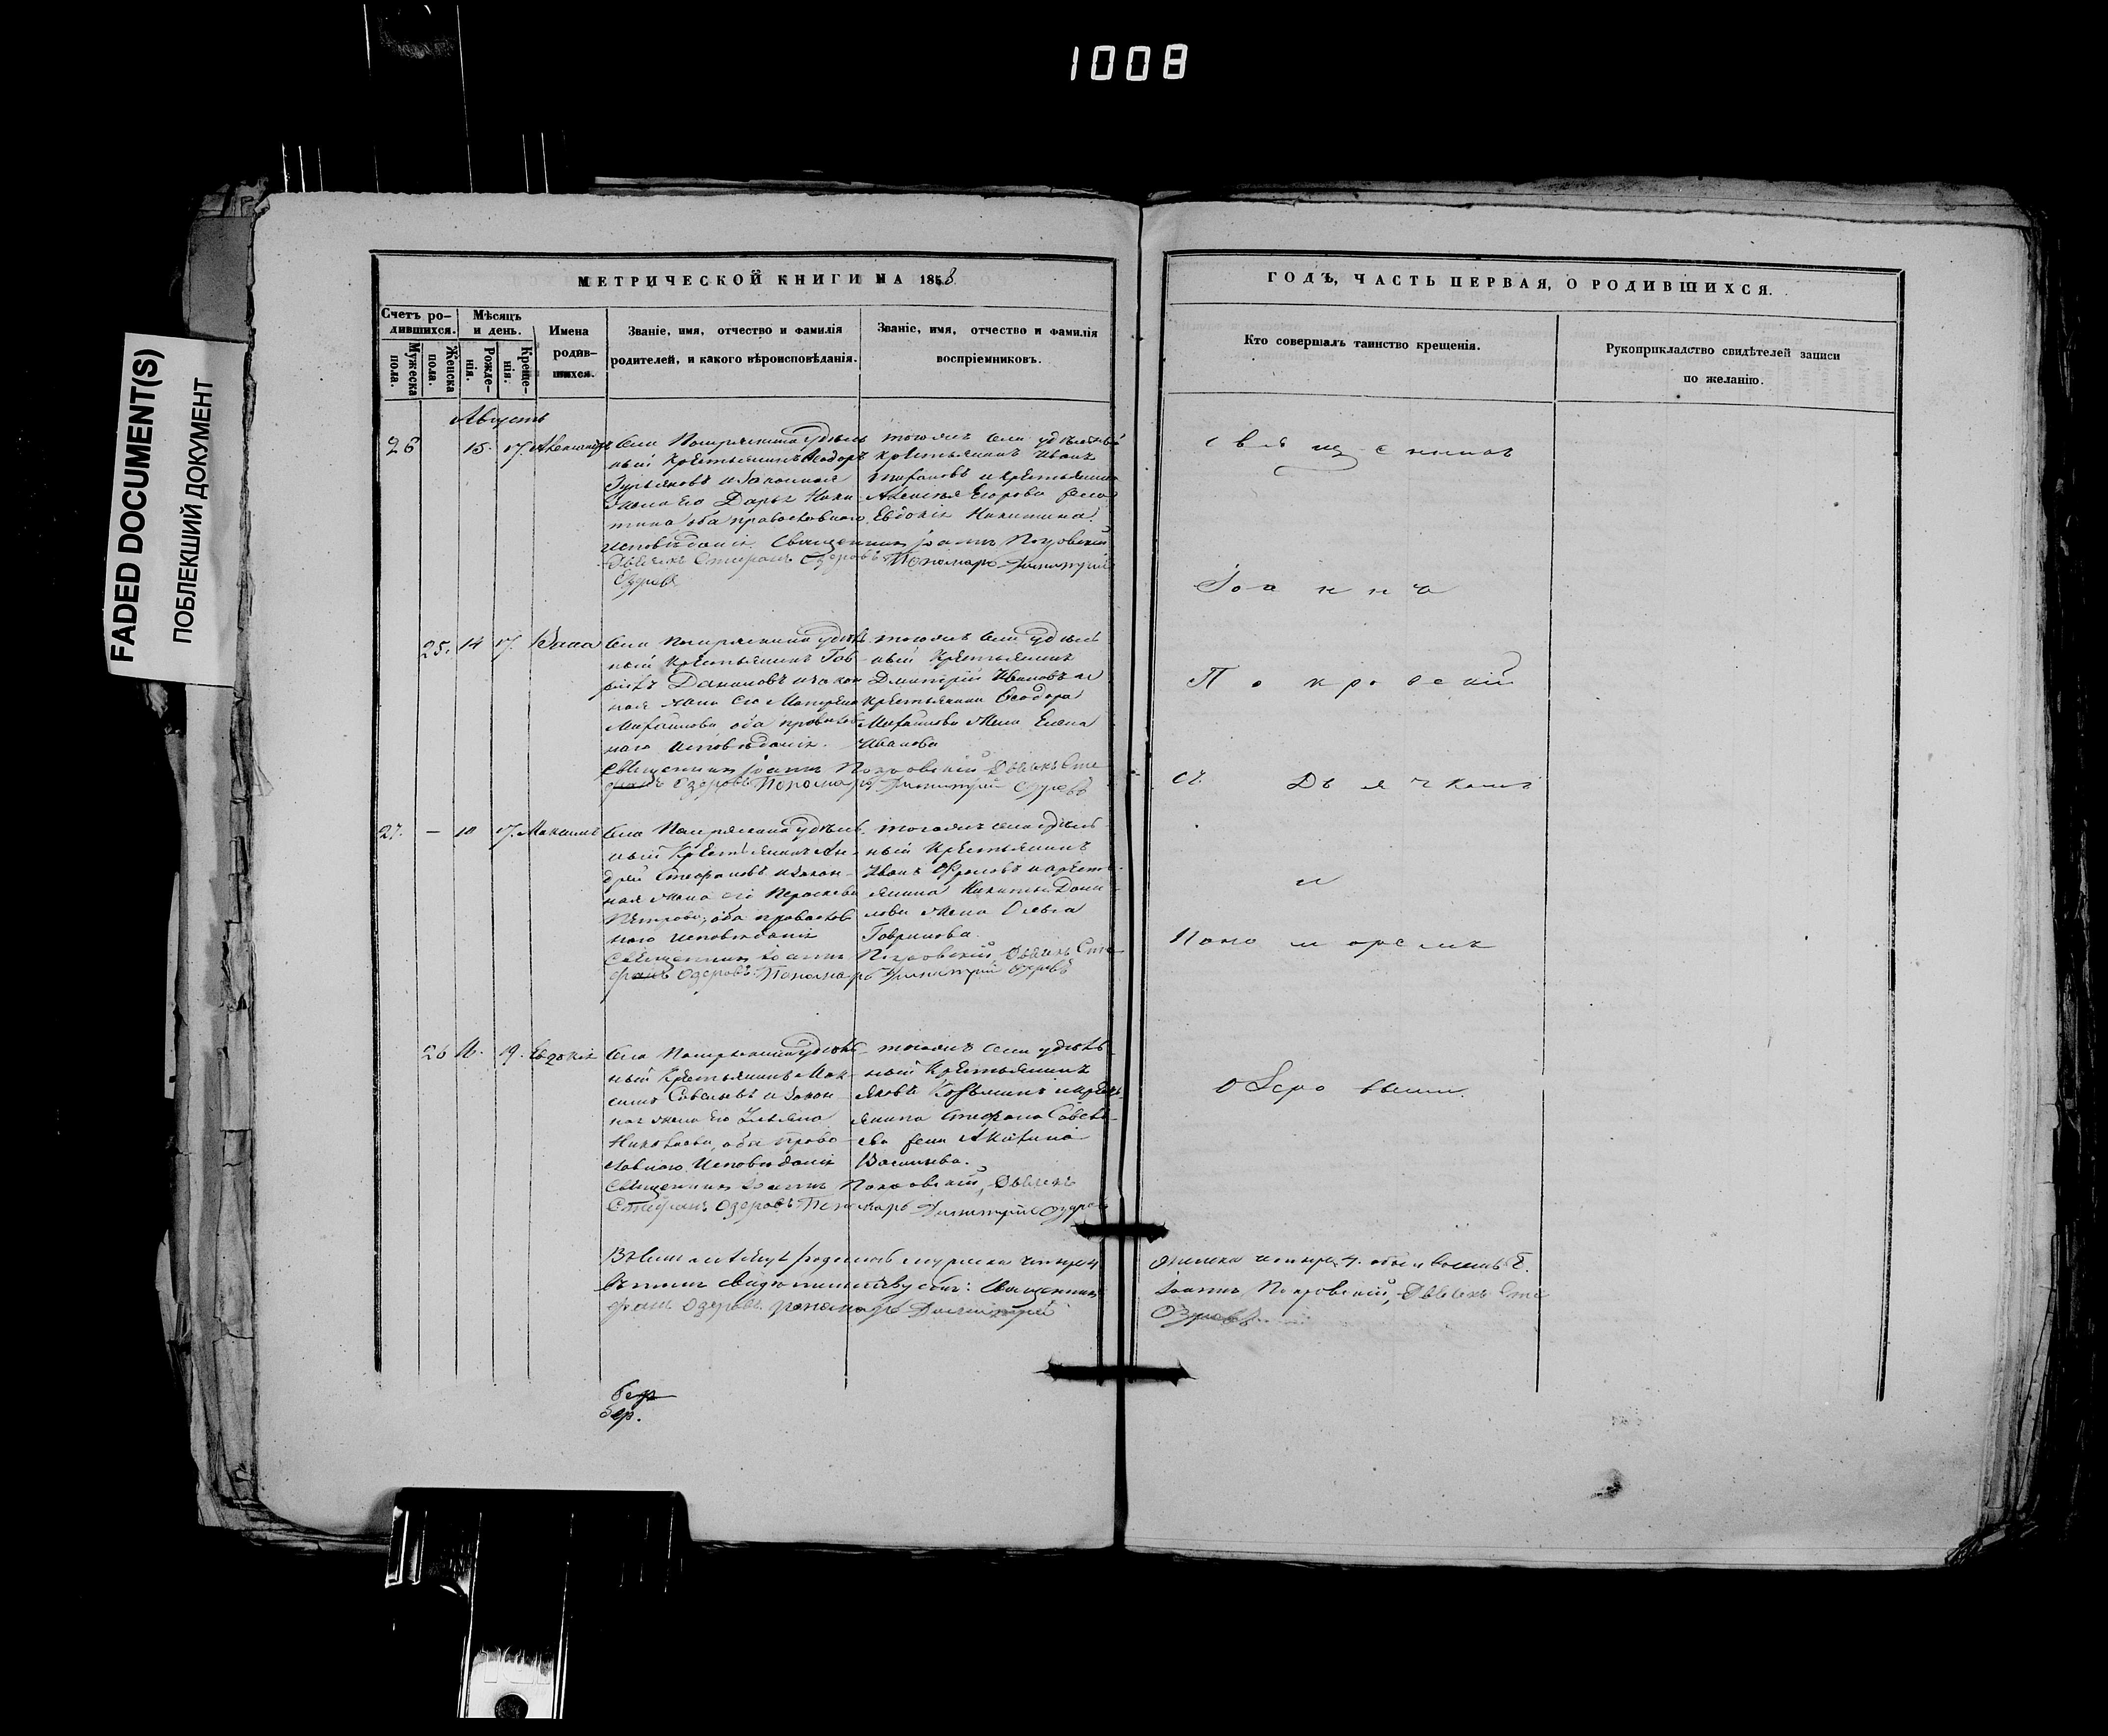 1008
FADED DOCUMENT(S)
ПОБЛЕКШИЙ ДОКУМЕНТ
МЕТРИЧЕСКОЙ КНИГИ НА 1858
Счетъ ро-
дившихся.
Мужеска
пола.
Женска
пола.
Мѣсяцъ
и день.
Рожде-
нія.
Креще-
нія.
Имена
родив-
шихся.
Званіе, имя, отчество и фамилія
родителей, и какого вѣроисповѣданія.
Званіе, имя, отчество и фамилія
воспріемниковъ.
Августъ
26 15. 17. Александръ
Села удѣль
ный крестьянинъ Ѳеодоръ
и законная
жена его Дарья Ники
тина оба православнаго
исповѣданія. Священникъ Іоаннъ Покровскій
Дьячекъ Стефанъ Озеровъ Пономарь Димитрій
Озеровъ
тогожъ села удѣльный
крестьянинъ Иванъ
и крестьянина
Алексѣя Егорова жена
Евдокія Никитина.
25. 14 17. Васса
Села удѣль
ный крестьянинъ Гав
рилъ Даниловъ и закон
ная жена его Матрена
Михайлова оба православ
наго исповѣданія.
Священникъ Іоаннъ Покровскій Дьячекъ Сте
фанъ Озеровъ Пономарь Димитрій Озеровъ
тогожъ села удѣль
ный крестьянинъ
Дмитрій Ивановъ и
крестьянина Ѳеодора
Михайлова жена Елена
Иванова
27. – 10 17. Максимъ
Села удѣль
ный крестьянинъ Ан
дрей Стефановъ и закон
ная жена его Параскева
Петрова, оба православ
наго исповѣданія
Священникъ Іоаннъ Покровскій Дьячекъ Сте
фанъ Озеровъ Пономарь Димитрій Озеровъ
тогожъ села удѣль
ный крестьянинъ
Иванъ Фроловъ и кресть
янина Никиты Дани
лова жена Ольга
Гаврилова.
26 16. 19. Евдокія
Села удѣль
ный крестьянинъ Мак
симъ Савельевъ и закон
ная жена его Ульяна
Николаева, оба право
славнаго исповѣданія
Священникъ Іоаннъ Покровскій, Дьячекъ
Стефанъ Озеровъ Пономарь Димитрій Озеровъ
тогожъ села удѣль
ный крестьянинъ
Яковъ Козьминъ и кресть
янина Стефана Савель
ева жена Акилина
Васильева.
родилось мужеска четыре 4
въ томъ свидѣтельствуемъ: Священникъ
фанъ Озеровъ пономарь Димитрій
бер
бер.
ГОДЪ, ЧАСТЬ ПЕРВАЯ, О РОДИВШИХСЯ.
Кто совершалъ таинство крещенія.
Рукоприкладство свидѣтелей записи
по желанію.
священникъ
Іоаннъ
Покровскій
съ Дьячкомъ
и
Пономаремъ
Озеровыми.
женска четыре 4. обоего восемь 8.
Іоаннъ Покровскій, Дьячекъ Сте
Озеровъ